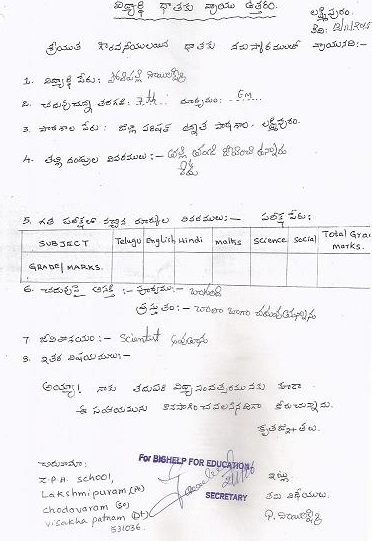 విద్యార్థి దాతకు వ్రాయు ఉత్తరం.
లక్ష్మీపురం.
తేది:
శ్రీయుత గౌరవనీయులయిన దాతకు నమస్కారములతో వ్రాయునది:-
1. విద్యార్థి పేరు:
2. చదువుచున్న తరగతి: 7th మాధ్యమం: EM
3. పాఠశాల పేరు: జిల్లా పరిషత్ ఉన్నత పాఠశాల. లక్ష్మీపురం.
4. తల్లి దండ్రుల వివరములు:- తల్లి తండ్రి
5. గత పరీక్షలో వచ్చిన మార్కుల వివరములు:- పరీక్ష పేరు:
SUBJECT Telugu English Hindi maths science social Total Grad marks.
GRADE/MARKS.
6. చదువుపై ఆసక్తి:- పూర్వము:- బాగుంది
ప్రస్తుతం:- చాలా బాగా చదువుతున్నాను
7 జీవితాశయం:- Scientist
8. ఇతర విషయములు:-
అయ్యా! నాకు తదుపరి విద్యాసంవత్సరమునకు కూడా
ఈ సహాయమును కొనసాగించవలసినదిగా కోరుచున్నాను.
కృతజ్ఞతలు.
చిరునామా:
Z.P.H. SCHOOL,
Lakshmipuram (Po)
chodavaram (so)
visakha patnam (Dt)
531036.
For BIGHELP FOR EDUCATION
SECRETARY
ఇట్లు
తమ విధేయులు.